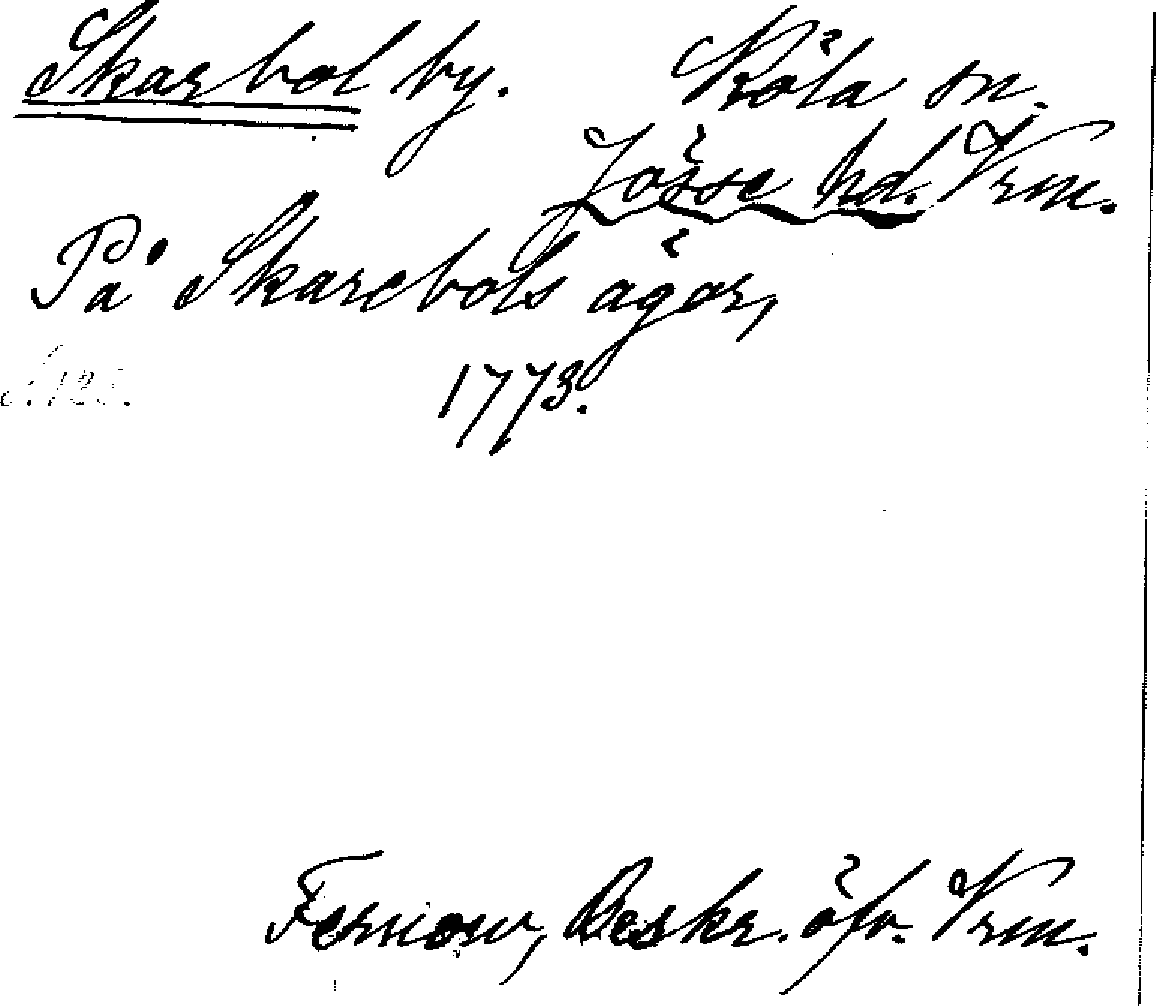 Skarbol by. Köla sn.
Jösse hd. Vrm.
På Skarebols ägor,
1773.
Fernow, Beskr. öfv. Vrm.